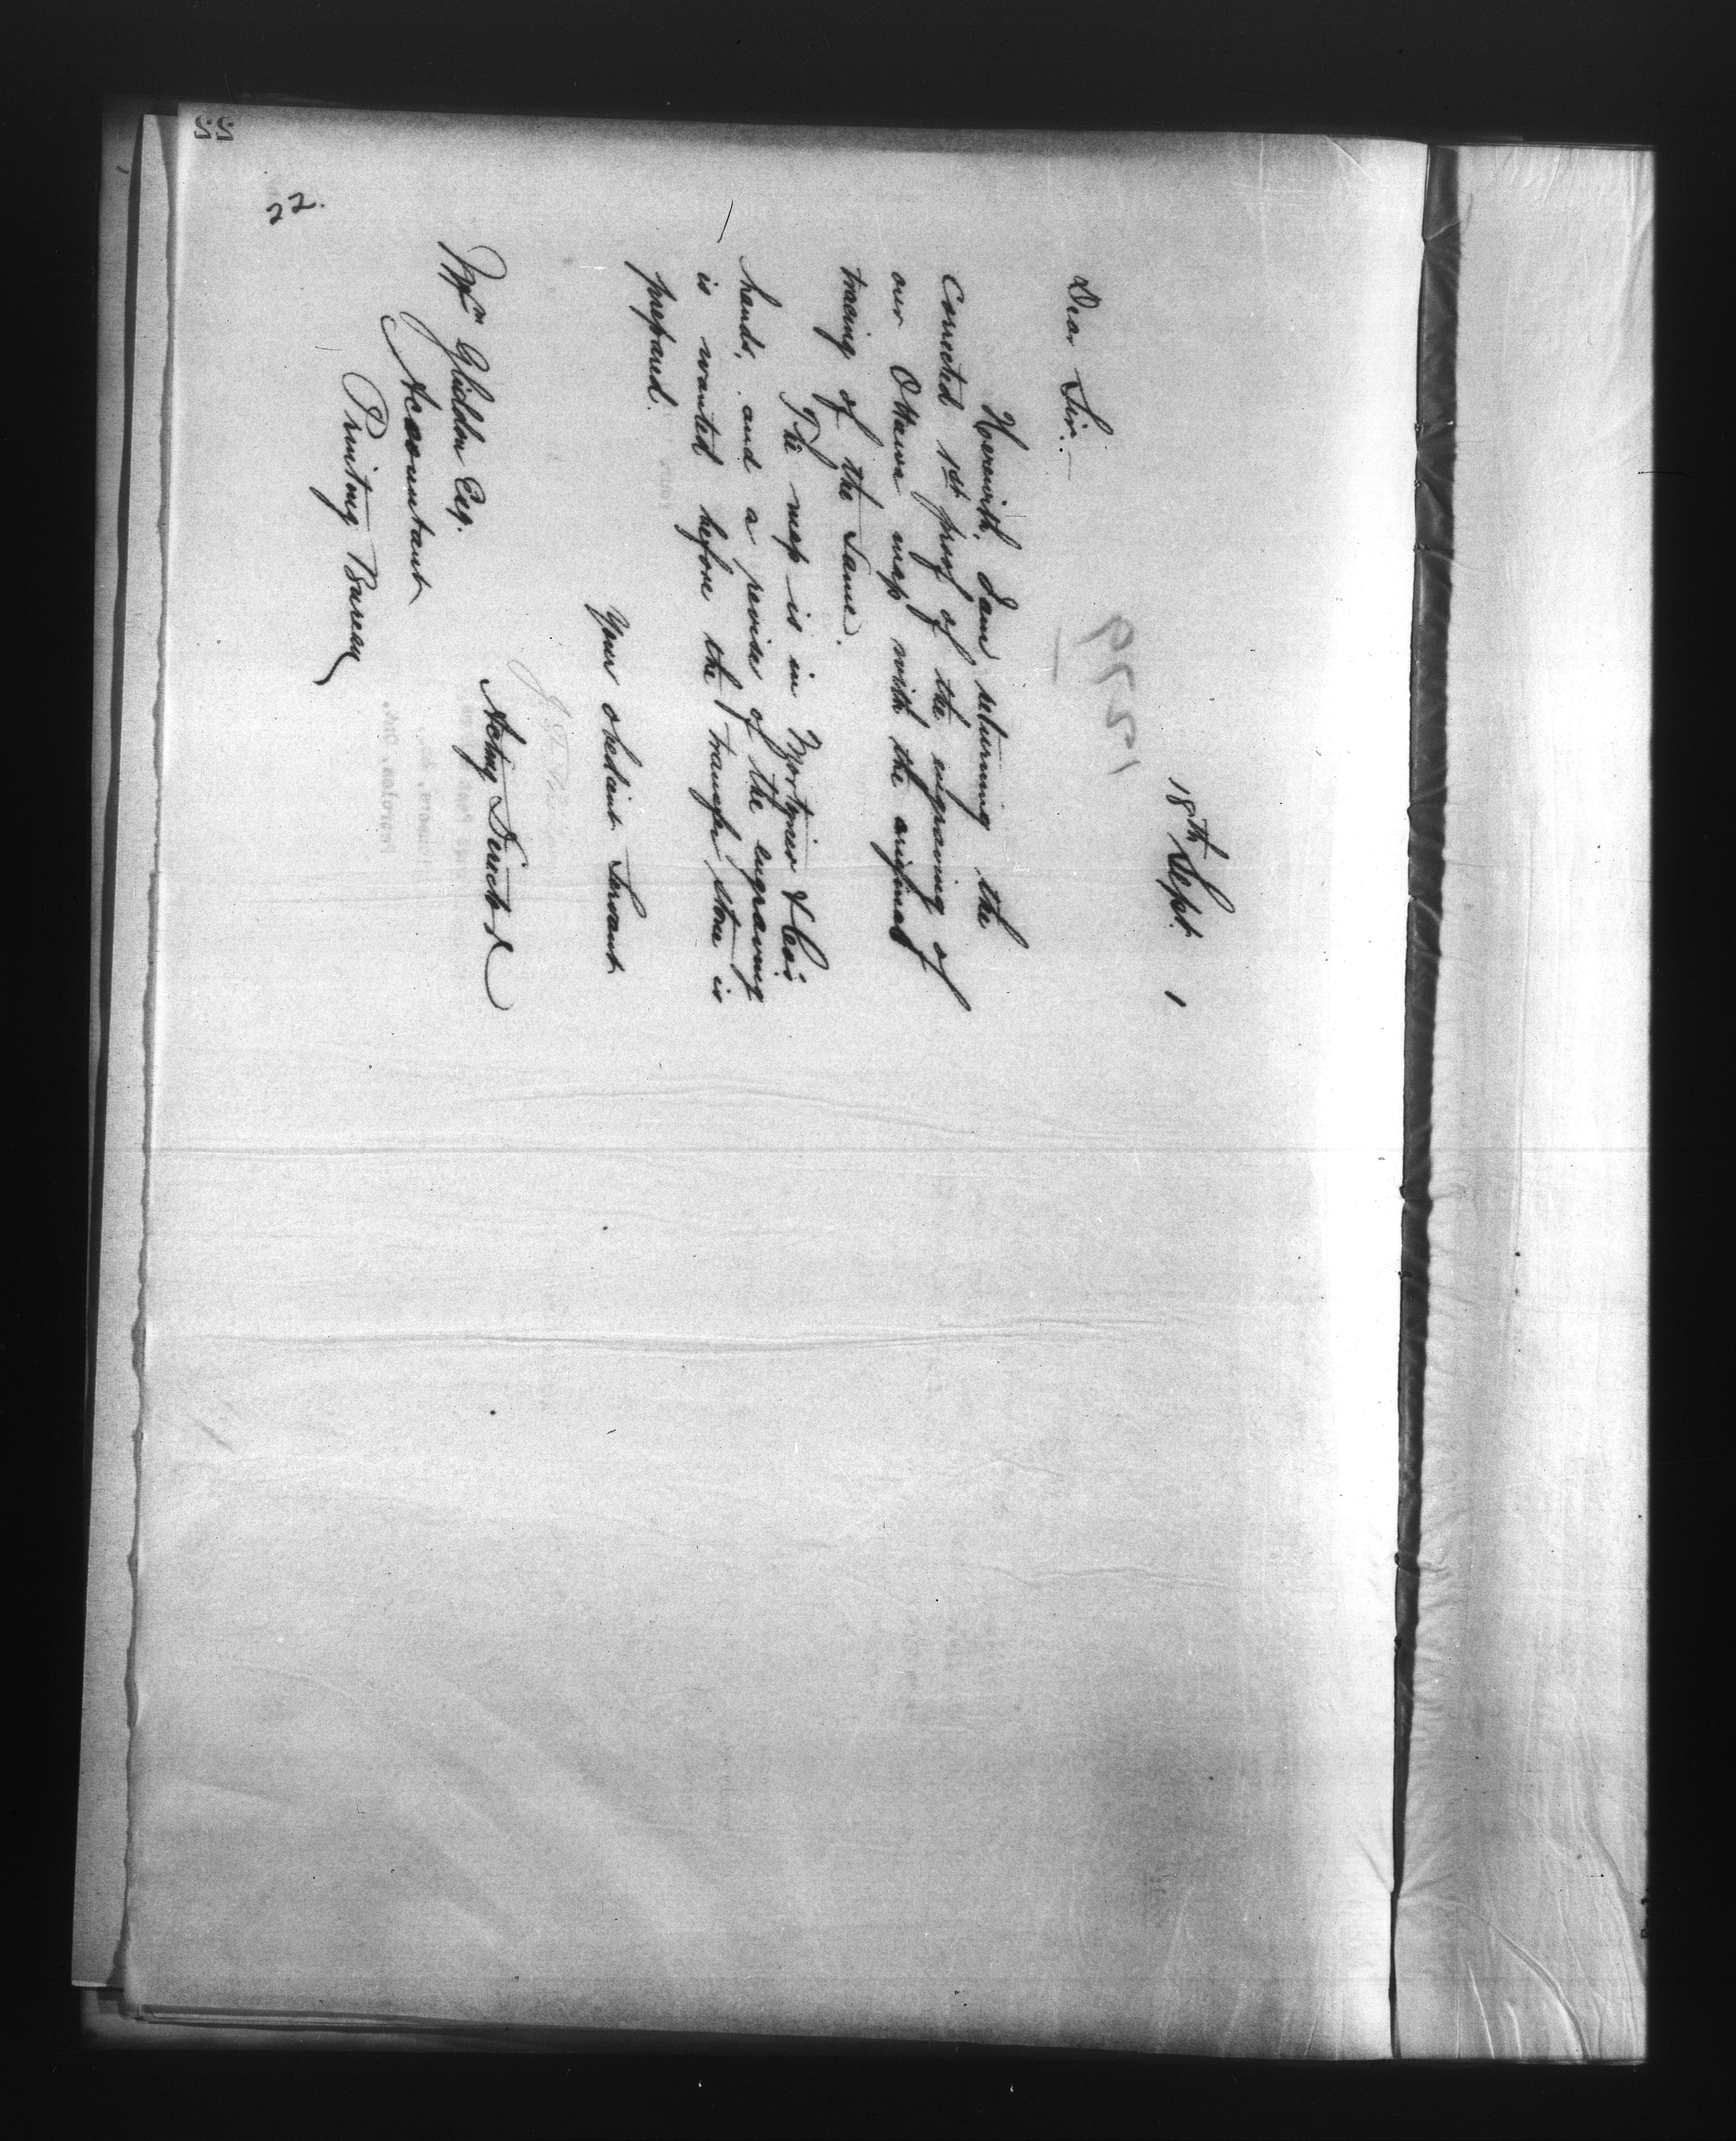 18th Sept. 1
Dear Sir:—
Herewith I am returning the
corrected 1st proof of the engraving of
our Ottawa map with the original
tracing of the same.
The map is in Mortimer & Co's
hands, and a revise of the engraving
is wanted before the transfer stone is
prepared.
Your obedient Servant
Acting Director
Wm Gliddon Esq.
Accountant
Printing Bureau
22.
22